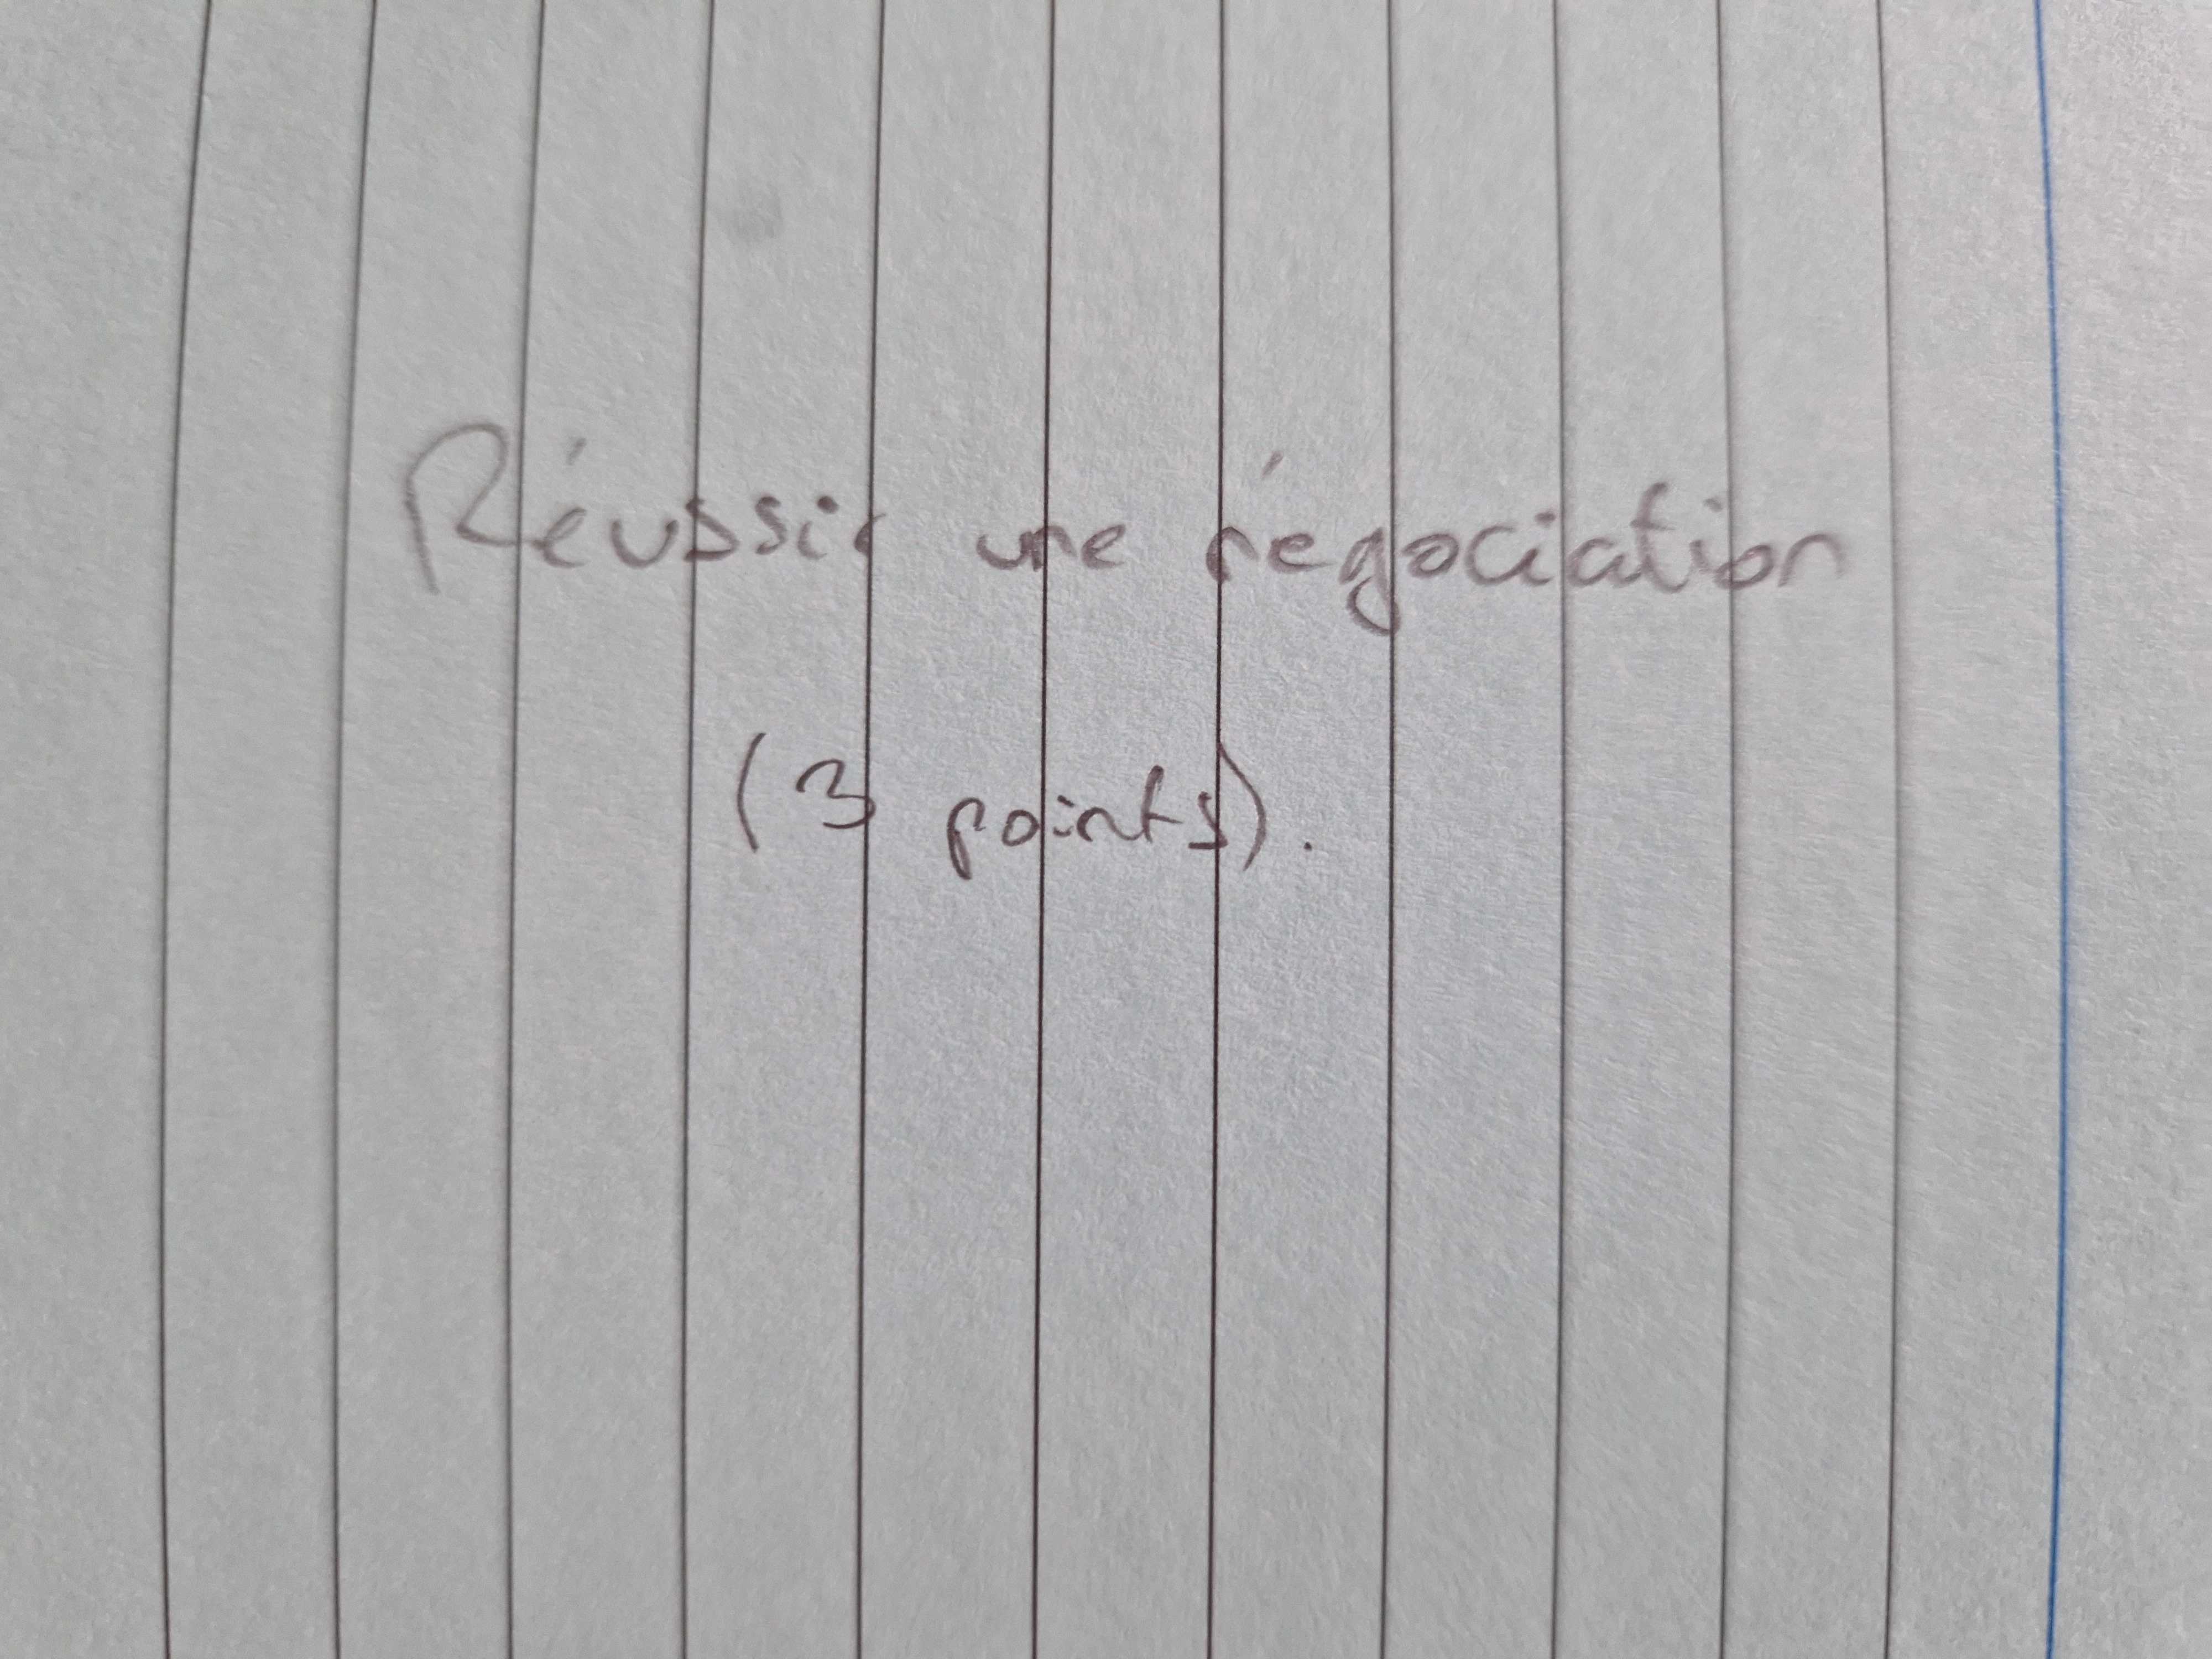 Réussir une négociation
(3 points).